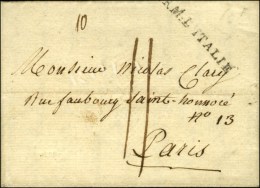 10
ARM. D'ITALIE
Monsieur Nicolas Clary
Rue faubourg Saint-honnoré
N° 13
Paris